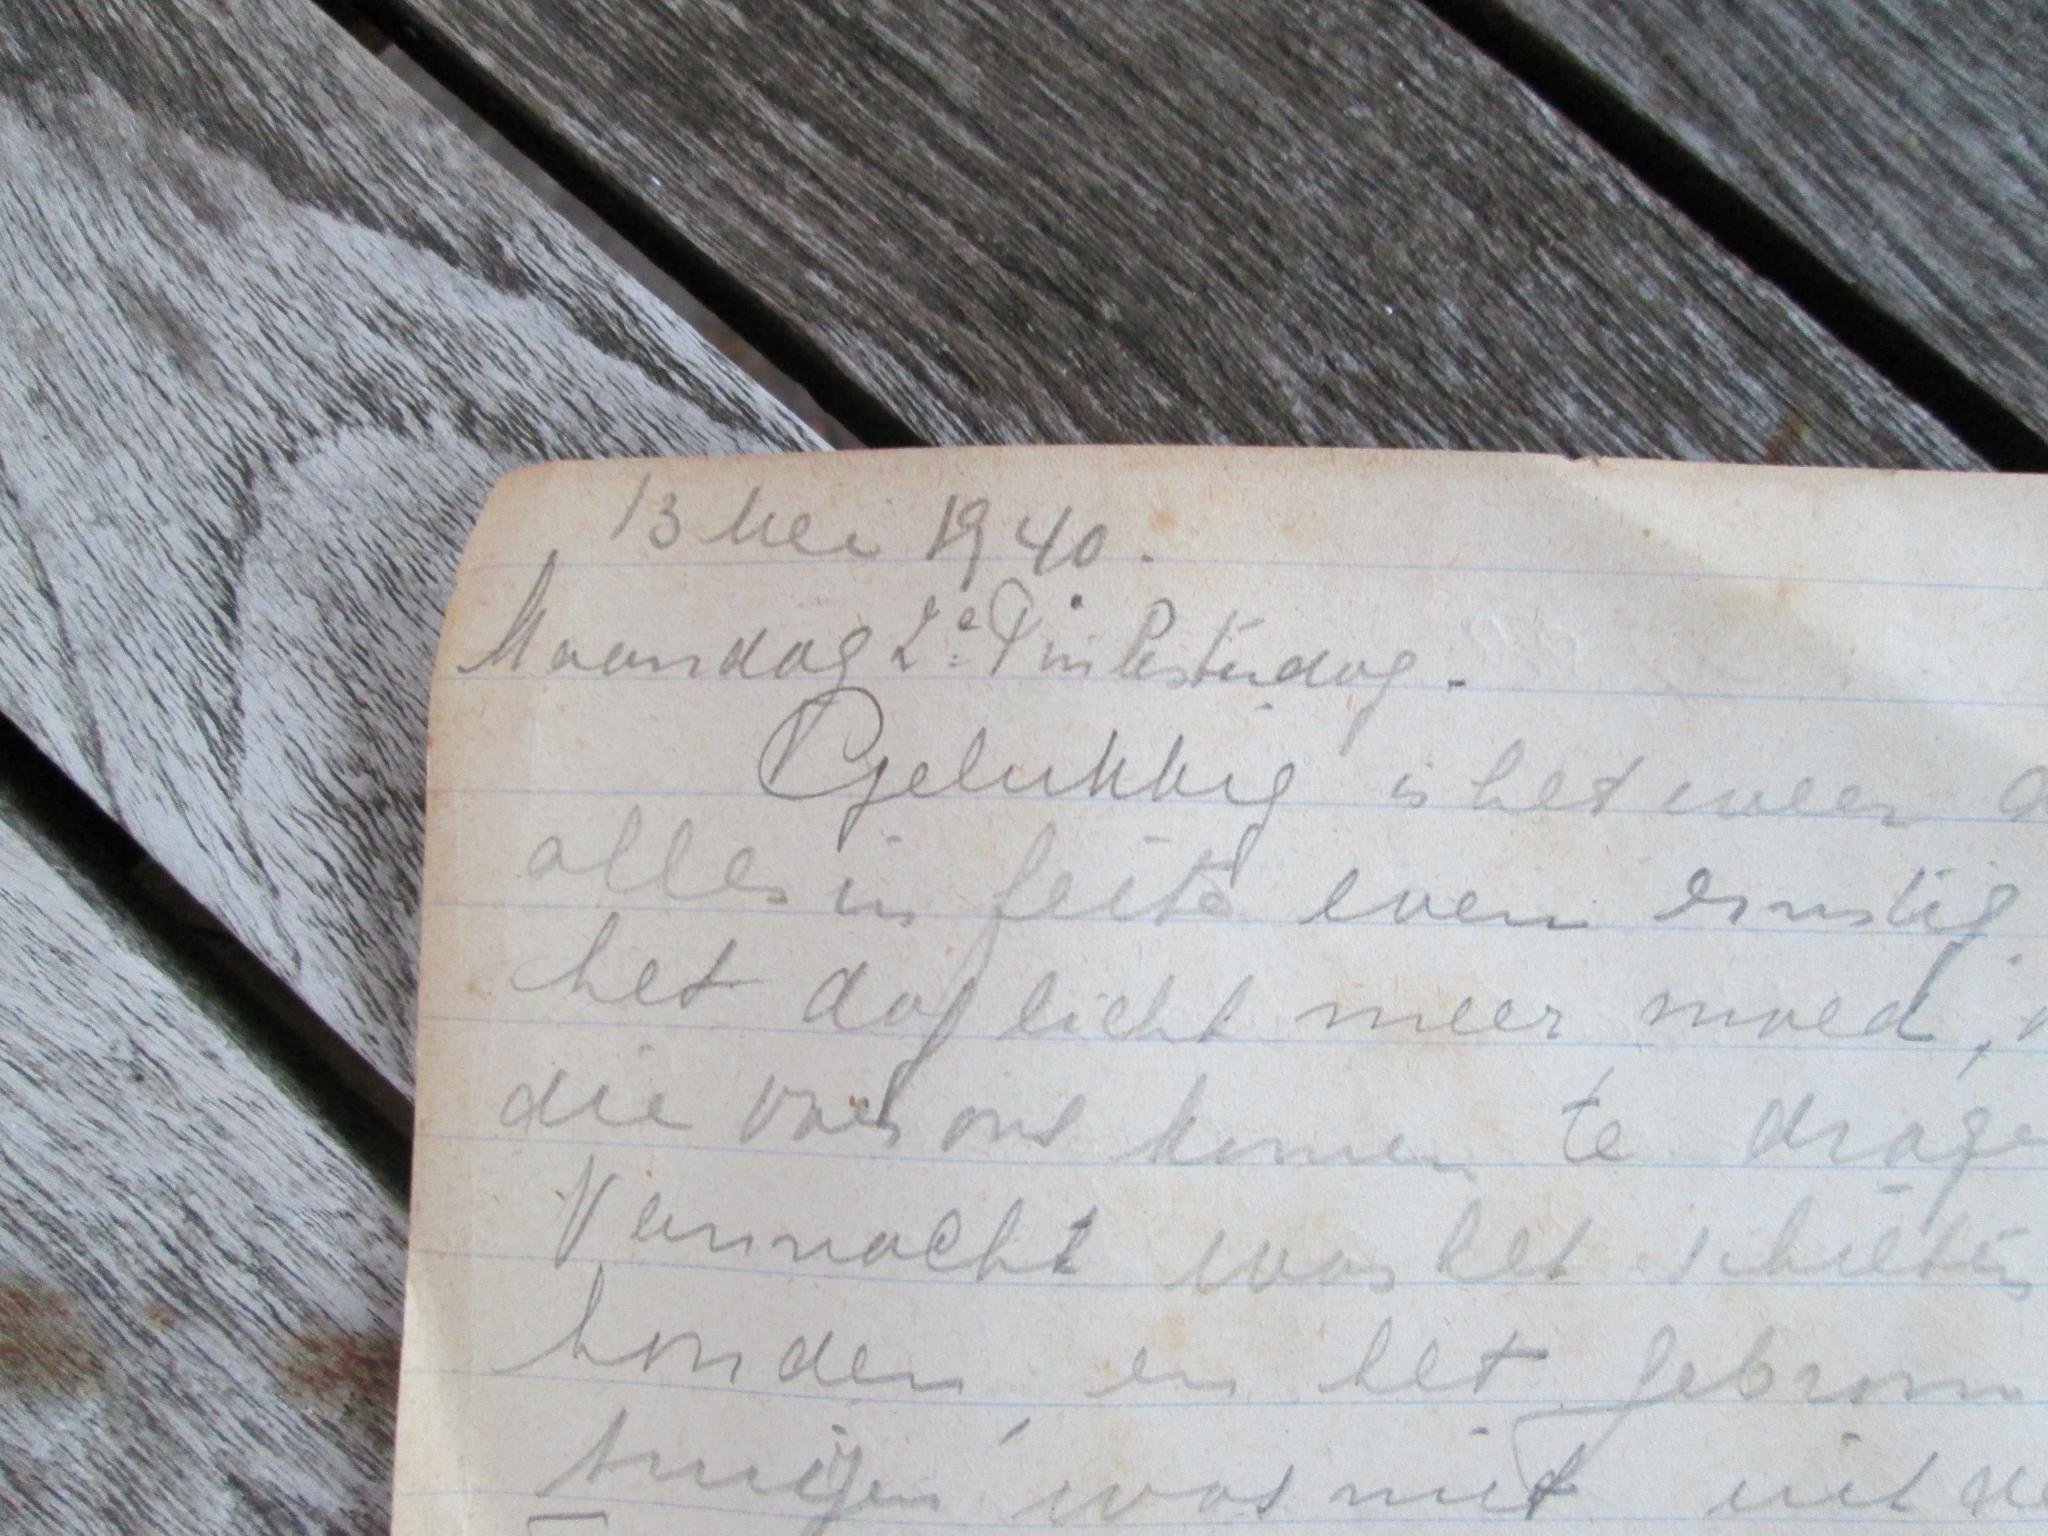 13 Mei 1940.
Maandag 2e Pinksterdag.
Gelukkig is het weer
alles in feite even ernstig.
het daglicht meer moed,
die voor ons komen te drage
Vannacht was het schieten
honden en het gebrom
tuigen, was niet uit de